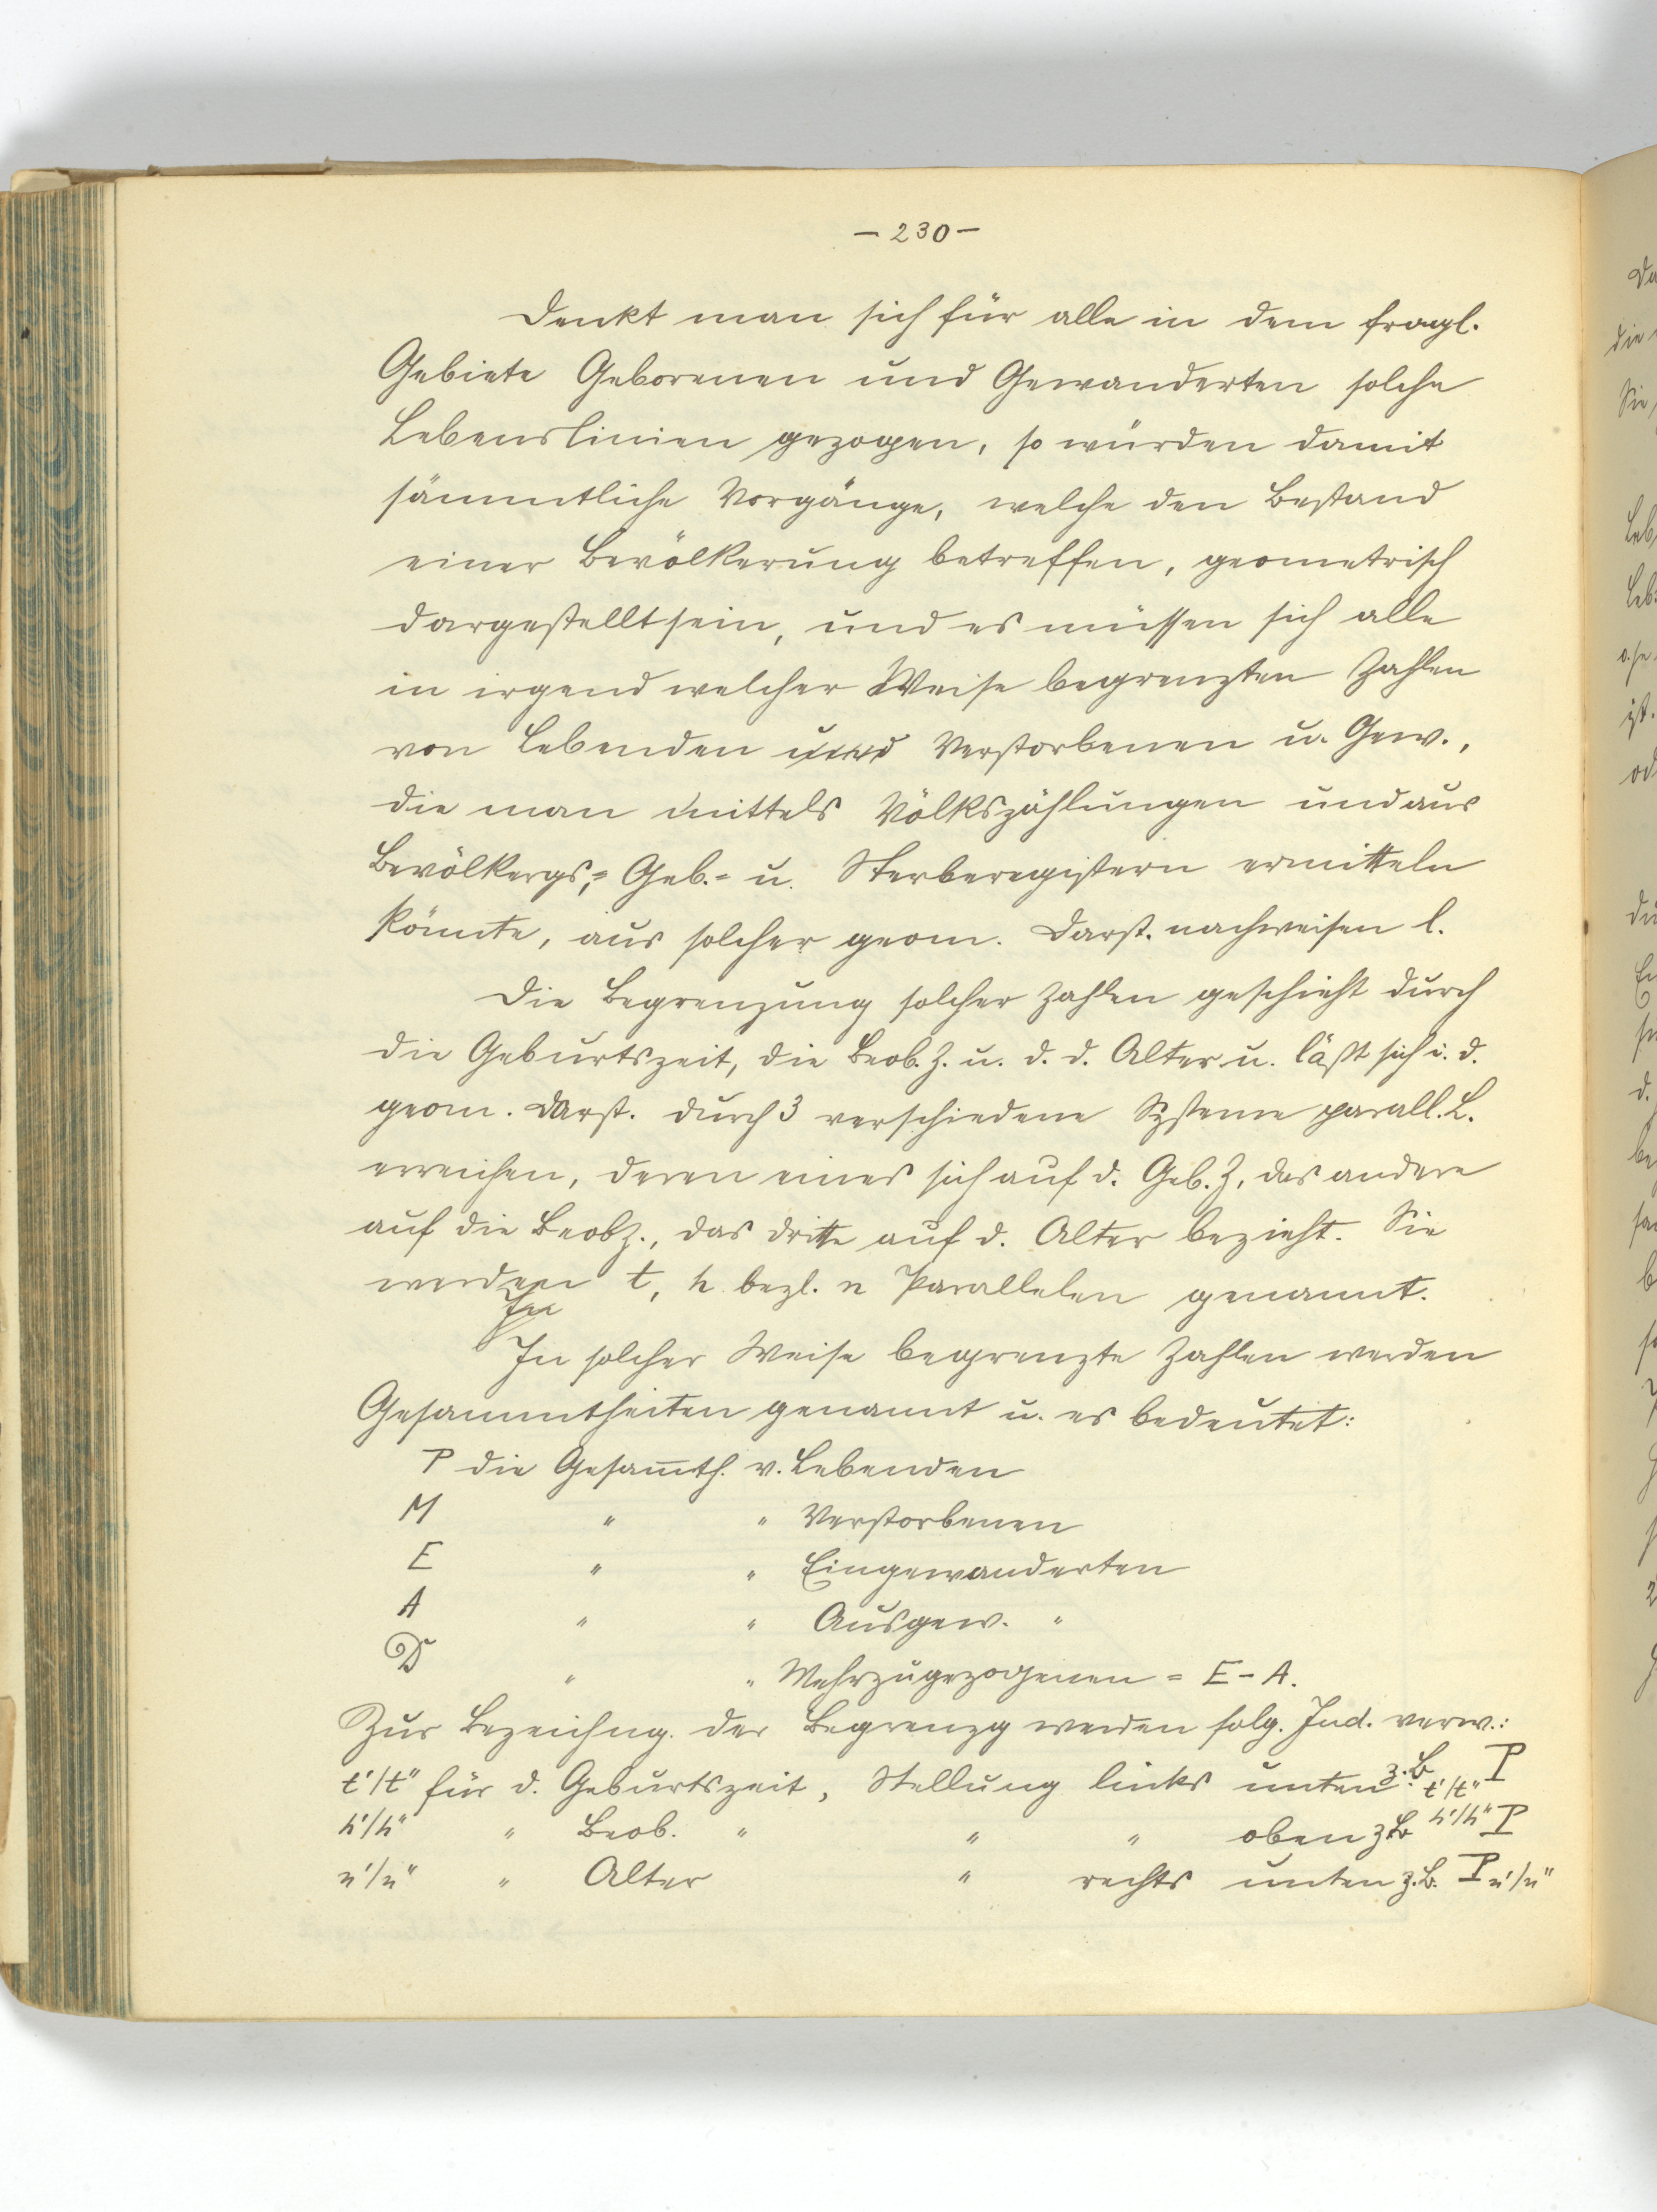 – 230 –
Denkt man sich für alle in dem fragl.
Gebiete Geborenen und Gewanderten solche
Lebenslinien gezogen, so würden damit
sämmtliche Vorgänge, welche den Bestand
einer Bevölkerung betreffen, geometrisch
dargestellt sein, und es müssen sich alle
in irgend welcher Weise begrenzten Zahlen
von Lebenden und Verstorbenen u. Gew.,
die man mittels Völkszählungen und aus
Bevölkergs,= Geb.= u. Sterberegistern ermitteln
könnte, aus solcher geom. Darst. nachweisen l.
Die Begrenzung solcher Zahlen geschieht durch
die Geburtszeit, die Beob. Z. u. d. d. Alter u. läßt sich i. d.
geom. Darst. durch 3 verschiedene Systeme parall. L.
erreichen, deren eines sich auf d. Geb. Z, das andere
auf die Beobz., das dritte auf d. Alter bezieht. Sie
werden t, h bezl. n Parallelen genannt.
In solcher Weise begrenzte Zahlen werden
Gesammtheiten genannt u. es bedeutet:
P die Gesam̅th. v. Lebenden
M " " Verstorbenen
E " " Eingewanderten
A " " Ausgew. "
D " " Mehrzugezogenen = E – A.
Zur Bezeichng. der Begrenzg werden folg. Ind. verw.:
t'/t" für d. Geburtszeit, Stellung links unten z. B t'/t" P
h'/h" " Beob. " " " oben z B h'/h" P
n'/n" " Alter " rechts unten z. B. P n'/n"